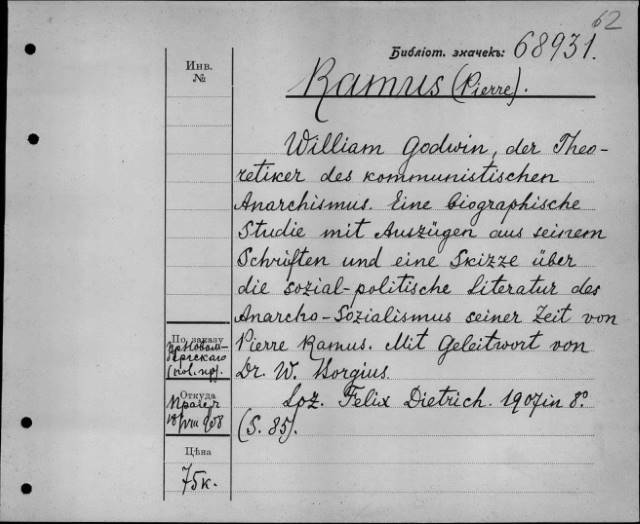 62
Библіот. значекъ: 68931.
Инв.
№
Ramus (Pierre).
William Godwin, der Theo-
retiker des kommunistischen
Anarchismus. Eine biographische
Studie mit Auszügen aus seinem
Schriften und eine Skizze über
die sozial-politische Literatur des
Anarcho-Sozialismus seiner Zeit von
Pierre Ramus. Mit Geleitwort von
Dr. W. Borgius.
Loz. Felix Dietrich. 1907 in 8°
(S. 85).
По заказу
Откуда
Прагеръ
18/VIII 908
Цѣна
75 к.